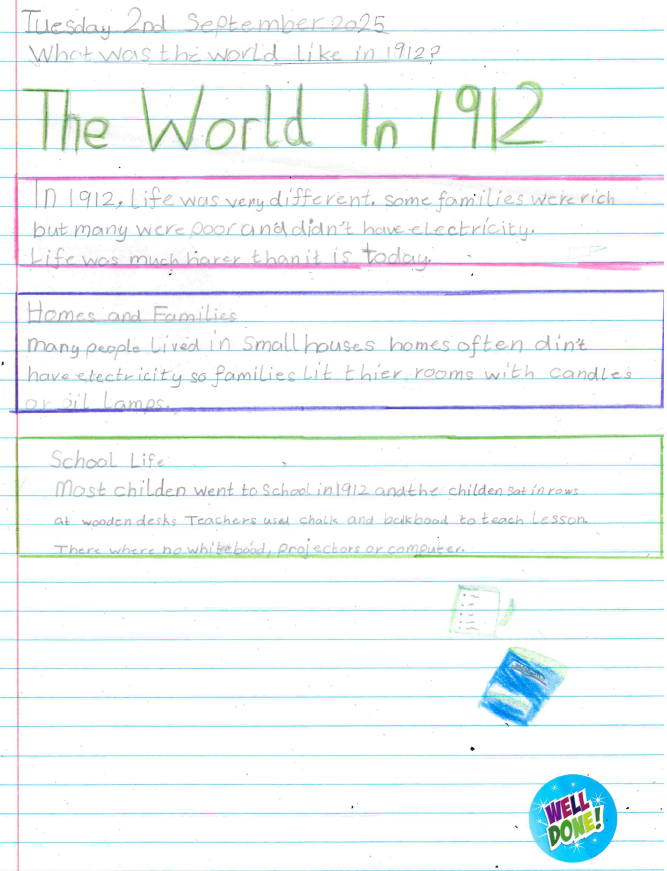 Tuesday 2nd September 2025
What was the world like in 1912?
The World In 1912
In 1912, Life was very different. some families were rich
but many were poor and didn't have electricity.
Life was much harer than it is today.
Homes and Families
many people Lived in small houses homes often din't
have electricity so families Lit thier rooms with candles
or oil lamps.
School Life
Most childen went to School in 1912 and the childen sat in rows
at wooden desks Teachers used chalk and balkboad to teach Lesson.
There where no whiteboad, projectors or computer.
WELL
DONE!